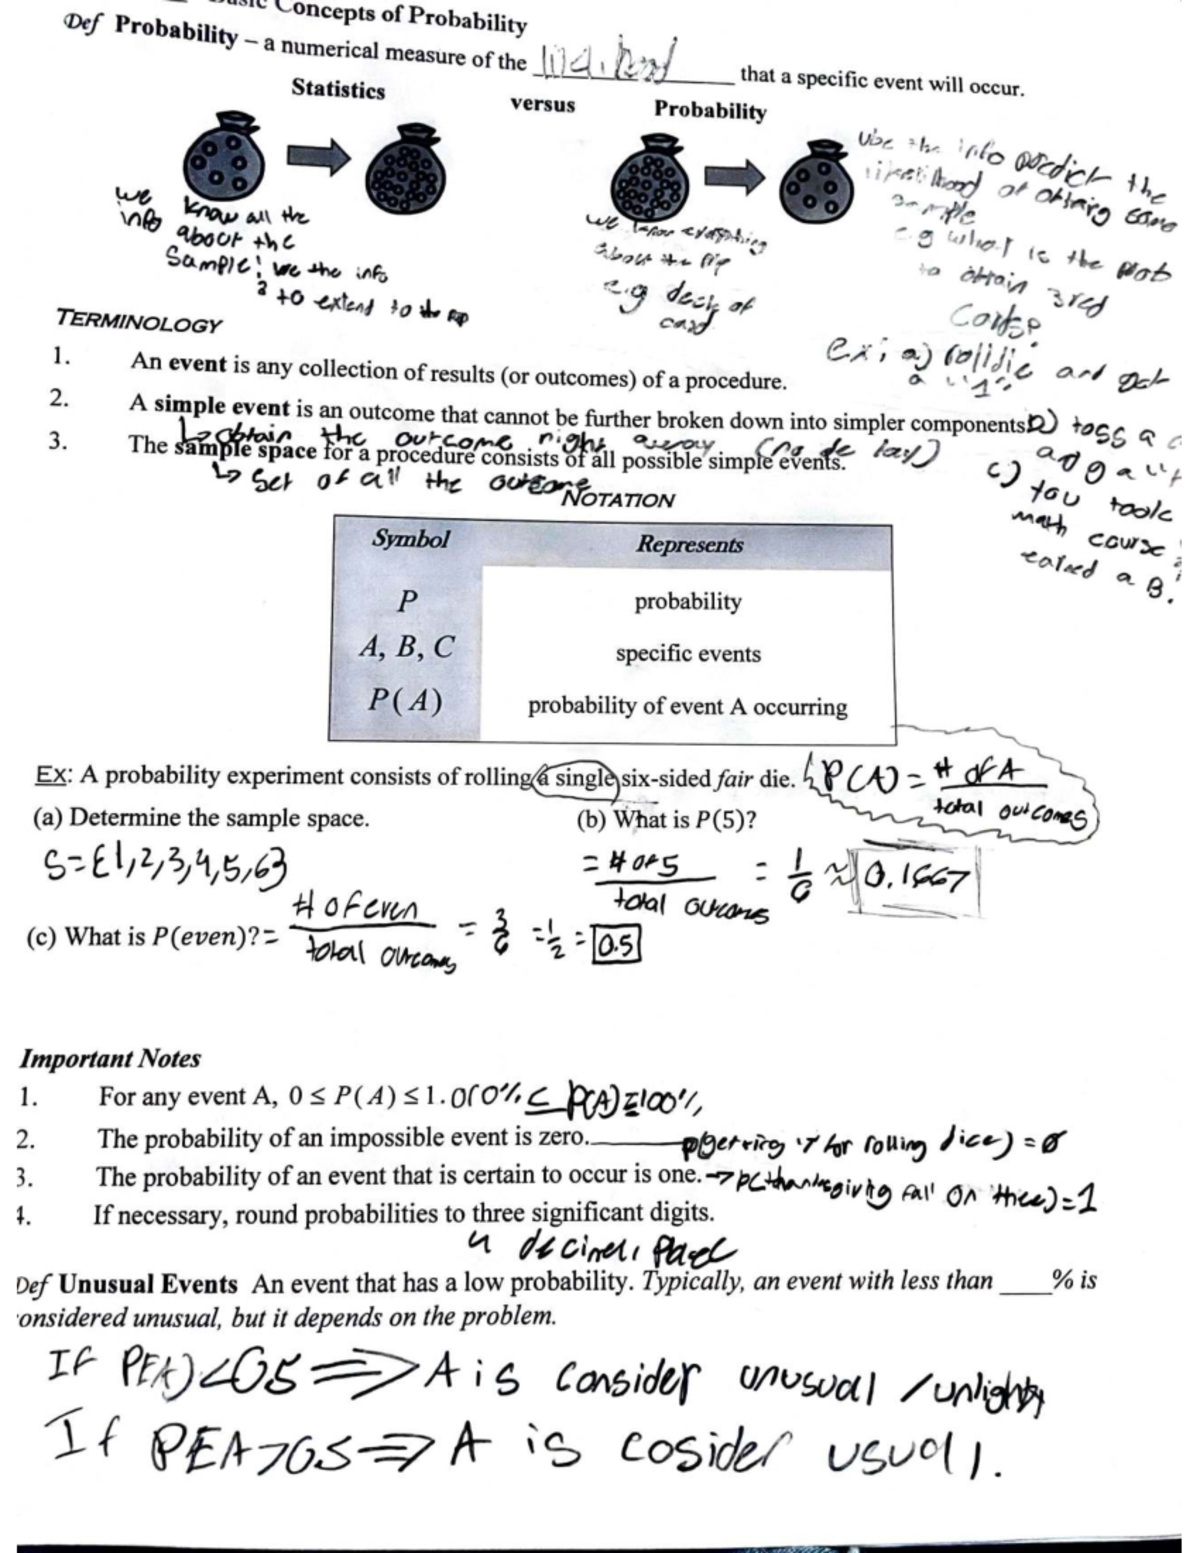 Concepts of Probability
Def Probability – a numerical measure of the ________ that a specific event will occur.
Statistics versus Probability
we know all the
info about the
Sample! we the info
to extend to the
we know everything
about the
e.g deck of
card
Use the info predict the
likelihood of obtaing some
sample
e.g what is the prob
to obtain 3 red
ex; a) roll die and get
a "1"
b) toss a
and g a
c) you took
math course
earned a B.
TERMINOLOGY
1. An event is any collection of results (or outcomes) of a procedure.
2. A simple event is an outcome that cannot be further broken down into simpler components.
↳ obtain the outcome right away (no delay)
3. The sample space for a procedure consists of all possible simple events.
↳ Set of all the outcome
NOTATION
Symbol Represents
P probability
A, B, C specific events
P(A) probability of event A occurring
Ex: A probability experiment consists of rolling a single six-sided fair die. ↳ P(A) = # of A / total outcomes
(a) Determine the sample space. (b) What is P(5)?
S={1,2,3,4,5,6} = # of 5 / total outcomes = 1/6 ≈ 0.1667
(c) What is P(even)? = # of even / total outcomes = 3/6 = 1/2 = 0.5
Important Notes
1. For any event A, 0 ≤ P(A) ≤ 1. or 0% ≤ P(A) ≤ 100%
2. The probability of an impossible event is zero. P(getting 7 for rolling dice) = 0
3. The probability of an event that is certain to occur is one. → P(thanksgiving fall on )=1
4. If necessary, round probabilities to three significant digits.
4 decimal
Def Unusual Events An event that has a low probability. Typically, an event with less than ____% is
onsidered unusual, but it depends on the problem.
If P(A)<05 ⟹ A is consider unusual /
If P(A>05 ⟹ A is cosider usual.